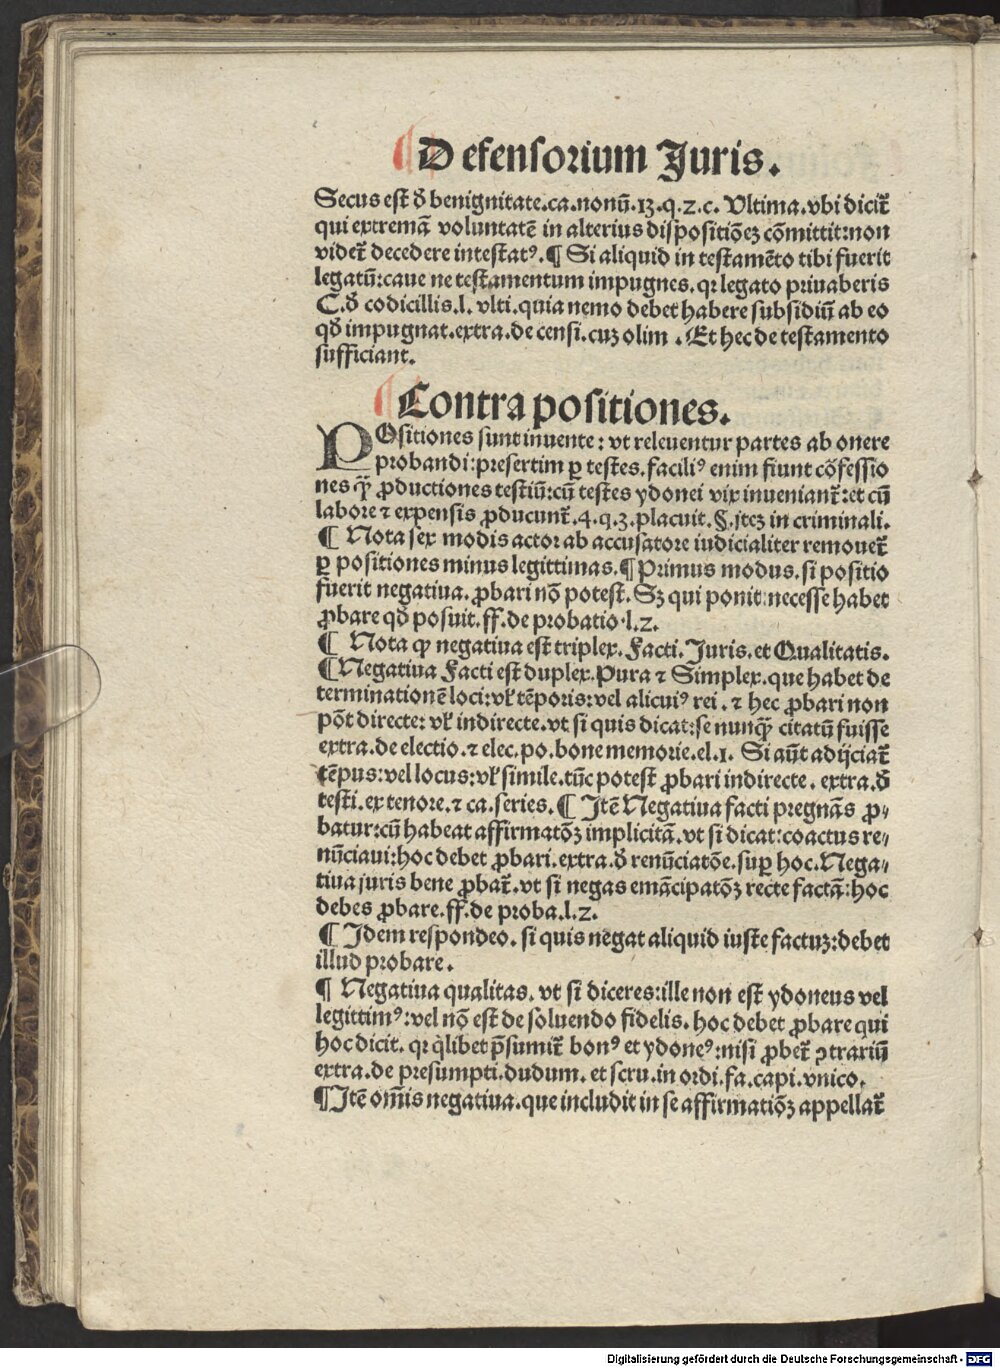 ¶ Defensorium Juris.
Secus est đ benignitate.ca.nonū.13.q.2.c. Vltima.vbi dicit᷑
qui extremā voluntatē in alterius dispositiōeꝫ cōmittit:non
videt᷑ decedere intestatꝰ.¶ Si aliquid in testamēto tibi fuerit
legatū:caue ne testamentum impugnes.qꝛ legato priuaberis
C.đ codicillis.l. vlti.quia nemo debet habere subsidiū ab eo
qđ impugnat.extra.de censi.cuꝫ olim .Et hec de testamento
sufficiant.
¶ Contra positiones.
POsitiones sunt inuente: vt releuentur partes ab onere
probandi:presertim ꝑ testes.faciliꝰ enim fiunt cōfessio
nes qꝙ̄ ꝓductiones testiū:cū testes ydonei vix inueniant᷑:et cū
labore ⁊ expensis ꝓducunt᷑.4.q.3.placuit.§.jteꝫ in criminali.
¶ Nota sex modis actor ab accusatore iudicialiter remouet᷑
ꝑ positiones minus legittimas.¶Primus modus.si positio
fuerit negatiua.ꝓbari nō potest.Sꝫ qui ponit necesse habet
ꝓbare qđ posuit.ff.de probatio.l.2.
¶ Nota ꝙ negatiua est triplex.Facti.Juris.et Qualitatis.
¶Negatiua Facti est duplex.Pura ⁊ Simplex.que habet de
terminationē loci:vl̓ tēporis:vel alicuiꝰ rei.⁊ hec ꝓbari non
pōt directe: vl̓ indirecte.vt si quis dicat:se nunꝙ̄ citatū fuisse
extra.de electio.⁊ elec.po.bone memorie.el.1. Si aūt adijciat᷑
tēpus:vel locus:vl̓ simile.tūc potest ꝓbari indirecte. extra.đ
testi.ex tenore.⁊ ca.series.¶ Jtē Negatiua facti pregnās ꝓ⸗
batur:cū habeat affirmatōꝫ implicitā.vt si dicat:coactus re⸗
nūciaui:hoc debet ꝓbari.extra.đ renūciatōe.suꝑ hoc.Nega⸗
tiua juris bene ꝓbat᷑.vt si negas emācipatōꝫ recte factā:hoc
debes ꝓbare.ff.de proba.l.2.
¶ Jdem respondeo.si quis negat aliquid iuste factuꝫ:debet
illud probare.
¶ Negatiua qualitas.vt si diceres:ille non est ydoneus vel
legittimꝰ:vel nō est de soluendo fidelis.hoc debet ꝓbare qui
hoc dicit.qꝛ q̇libet p̄sumit᷑ bonꝰ et ydoneꝰ:nisi ꝓbet᷑ ꝯtrariū
extra.de presumpti.dudum.et scru.in ordi.fa.capi.vnico.
¶Jtē om̄is negatiua.que includit in se affirmatiōꝫ appellat᷑
Digitalisierung gefördert durch die Deutsche Forschungsgemeinschaft - DFG